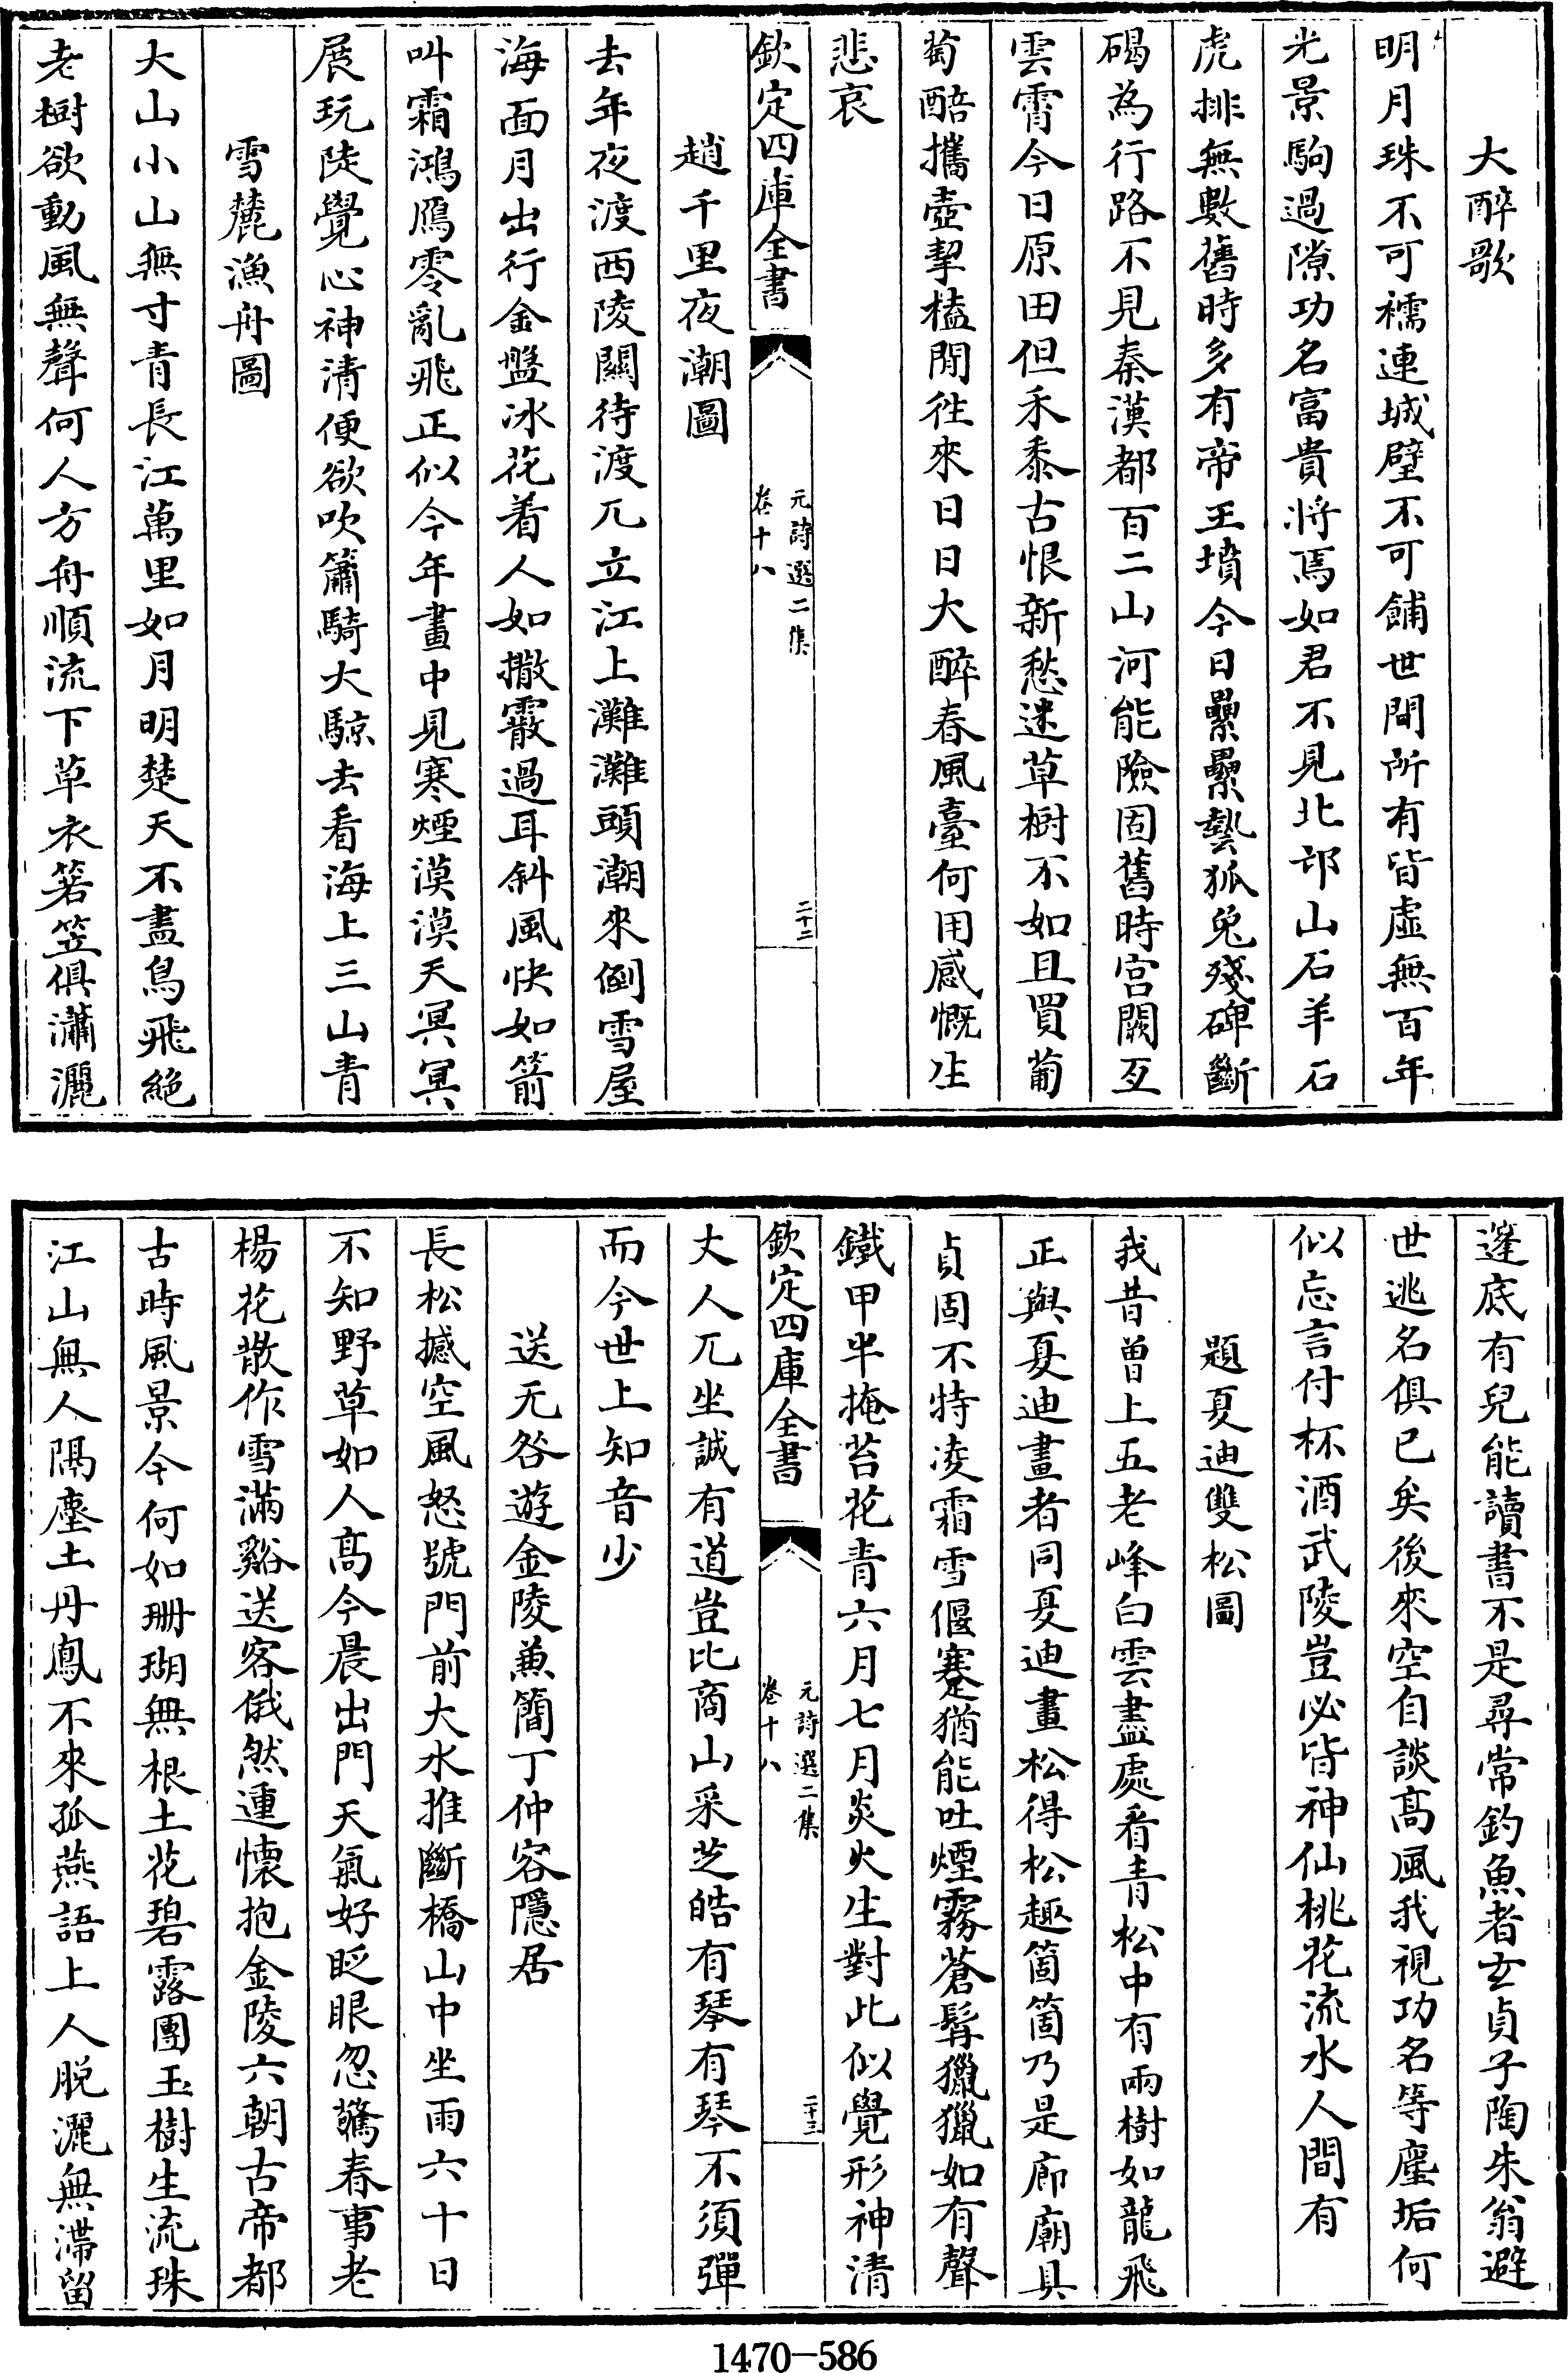 大醉歌
明月珠不可襦連城璧不可餔世間所有皆虛無百年
光景駒過隙功名富貴將焉如君不見北邙山石羊石
虎排無數舊時多有帝王墳今日纍纍蟄狐兔殘碑斷
碣為行路不見秦漢都百二山河能險固舊時宮闕亙
雲霄今日原田但禾黍古恨新愁迷草樹不如且買葡
萄醅攜壺挈榼閒徃來日日大醉春風臺何用感慨生
悲哀
欽定四庫全書
元詩選二集
卷十八
二十二
趙千里夜潮圖
去年夜渡西陵關待渡兀立江上灘灘頭潮來倒雪屋
海面月出行金盤冰花着人如撒霰過耳斜風快如箭
叫霜鴻鴈零亂飛正似今年畫中見寒煙漠漠天冥冥
展玩陡覺心神清便欲吹簫騎大鯨去看海上三山青
雪麓漁舟圖
大山小山無寸青長江萬里如月明楚天不盡鳥飛絶
老樹欲動風無聲何人方舟順流下草衣箬笠俱瀟灑
篷底有兒能讀書不是尋常釣魚者玄貞子陶朱翁避
世逃名俱已矣後來空自談髙風我視功名等塵垢何
似忘言付杯酒武陵豈必皆神仙桃花流水人間有
題夏迪雙松圖
我昔曽上五老峰白雲盡處看青松中有兩樹如龍飛
正與夏迪畫者同夏迪畫松得松趣箇箇乃是廊廟具
貞固不特凌霜雪偃蹇猶能吐煙霧蒼髯獵獵如有聲
鐵甲半掩苔花青六月七月炎火生對此似覺形神清
欽定四庫全書
元詩選二集
卷十八
二十三
丈人兀坐誠有道豈比商山采芝皓有琴有琴不須彈
而今世上知音少
送无咎遊金陵兼簡丁仲容隱居
長松撼空風怒號門前大水推斷橋山中坐雨六十日
不知野草如人髙今晨出門天氣好眨眼忽驚春事老
楊花散作雪滿谿送客俄然連懷抱金陵六朝古帝都
古時風景今何如珊瑚無根土花碧露團玉樹生流珠
江山無人隔塵土丹鳳不來孤燕語上人脱灑無滯留
1470—586